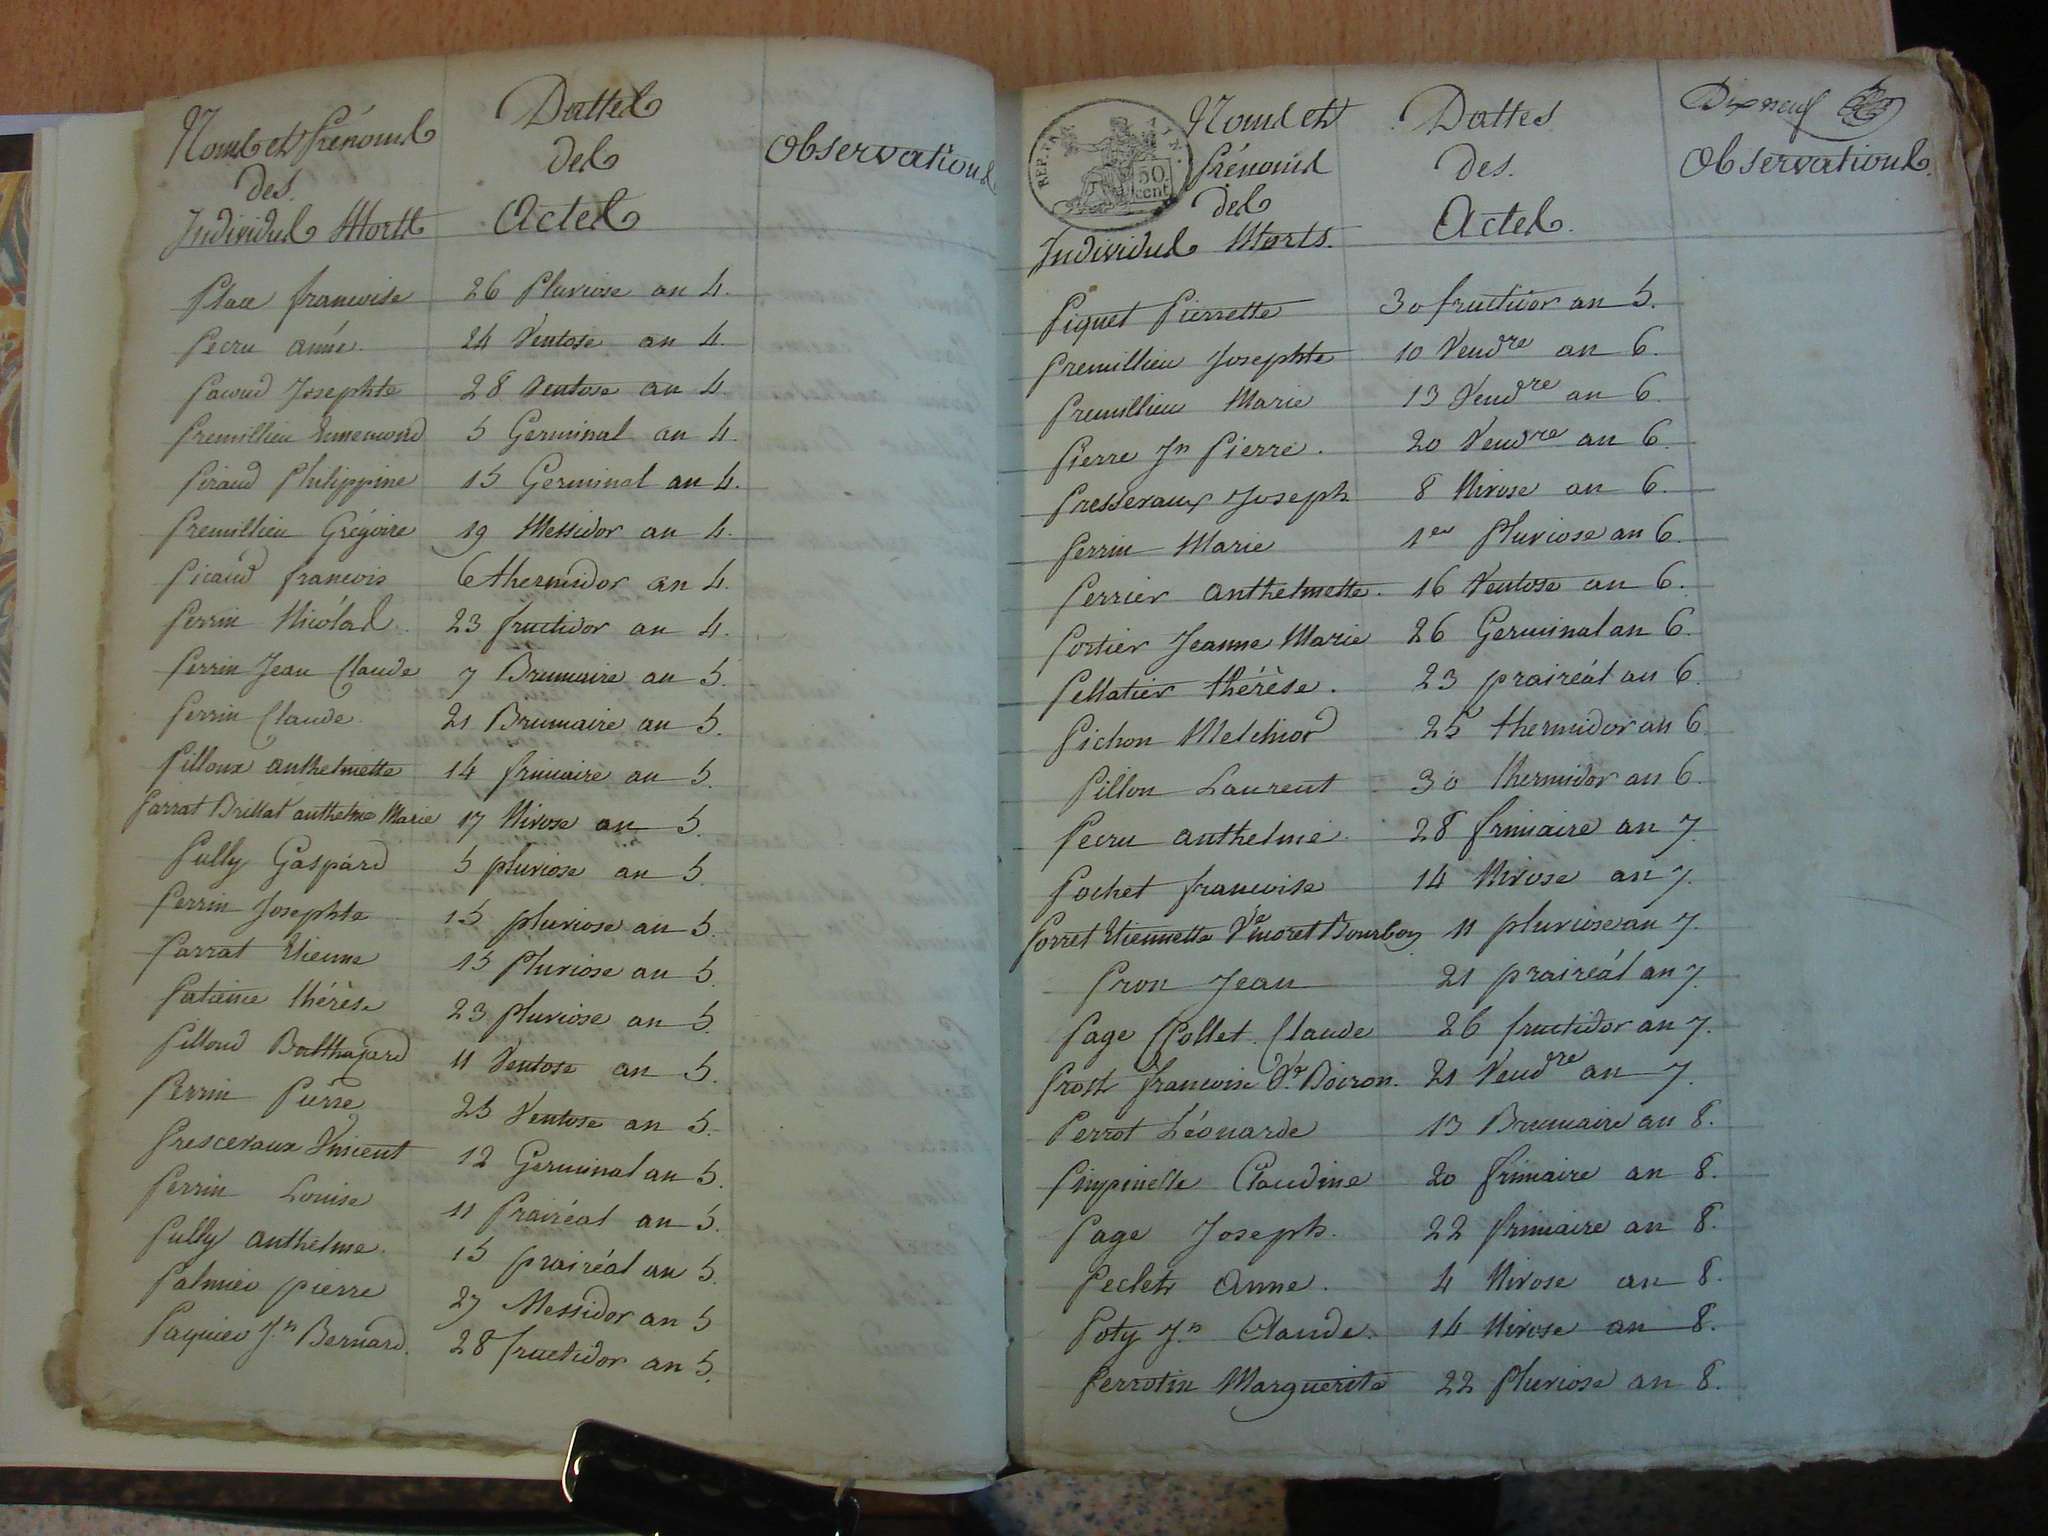 Noms et Prénoms
des
Individus Morts
Dattes
des
Actes
Observations
Place francoise 26 Pluviose an 4.
Pecru anné. 24 Ventose an 4.
Pacoud Josephte 28 Ventose an 4.
Premillieu Ennemond 5 Germinal an 4.
Piraud Philippine 15 Germinal an 4.
Premillieu Grégoire 19 Messidor an 4.
Picaud francois 6 thermidor an 4.
Perrin Nicolas 23 fructidor an 4.
Perrin Jean Claude 7 Brumaire an 5.
Perrin Claude 21 Brumaire an 5.
Pilloux anthelmette 14 frimaire an 5.
Parrat Brillat anthelme Marie 17 Nivose an 5.
Pully Gaspard 5 pluviose an 5.
Perrin Josephte 15 pluviose an 5.
Parrat Etienne 15 Pluviose an 5.
thérèse 23 pluviose an 5.
Pilloud Balthazard 11 Ventose an 5.
Perrin Pierre 25 Ventose an 5.
Prescevaux Vincent 12 Germinal an 5.
Perrin Louise 11 Prairéal an 5.
Pully anthelme. 15 prairéal an 5.
Palmier pierre 27 Messidor an 5
Paquier Jn Bernard. 28 fructidor an 5.
REP. FRA.
50.
cent
Noms et
Prénoms
des
Individus Morts.
Dattes
des.
Actes.
Dix neuf
Observations.
Piquet Pierrette 30 fructidor an 5.
Premillieu Josephte 10 Vendre an 6.
Premillieu Marie 13 Vendre an 6.
Pierre Jn Pierre. 20 Vendre an 6.
Pressevaux Joseph 8 Nivose an 6.
Perrin Marie 1er Pluviose an 6.
Perrier anthelmette. 16 Ventose an 6.
Portier Jeanne Marie 26 Germinal an 6.
Pellatier thérèse. 23 prairéal an 6.
Pichon Melchior 25 thermidor an 6.
Pillon Laurent 30 thermidor an 6.
Pecru anthelme 28 frimaire an 7.
Pochet francoise 14 Nivose an 7.
Porret Etiennette Ve Bourbon 11 pluviose an 7.
Pron Jean 21 prairéal an 7.
Page Collet Claude 26 fructidor an 7.
Prost francoise Ve Boiron. 21 Vendre an 7.
Perrot Léonarde 13 Brumaire an 8.
Pimpinelle Claudine 20 frimaire an 8.
Page Joseph. 22 frimaire an 8.
Peclet Anne. 4 Nivose an 8.
Poty Jn Claude. 14 Nivose an 8.
Perrotin Marguerite 22 Pluviose an 8.